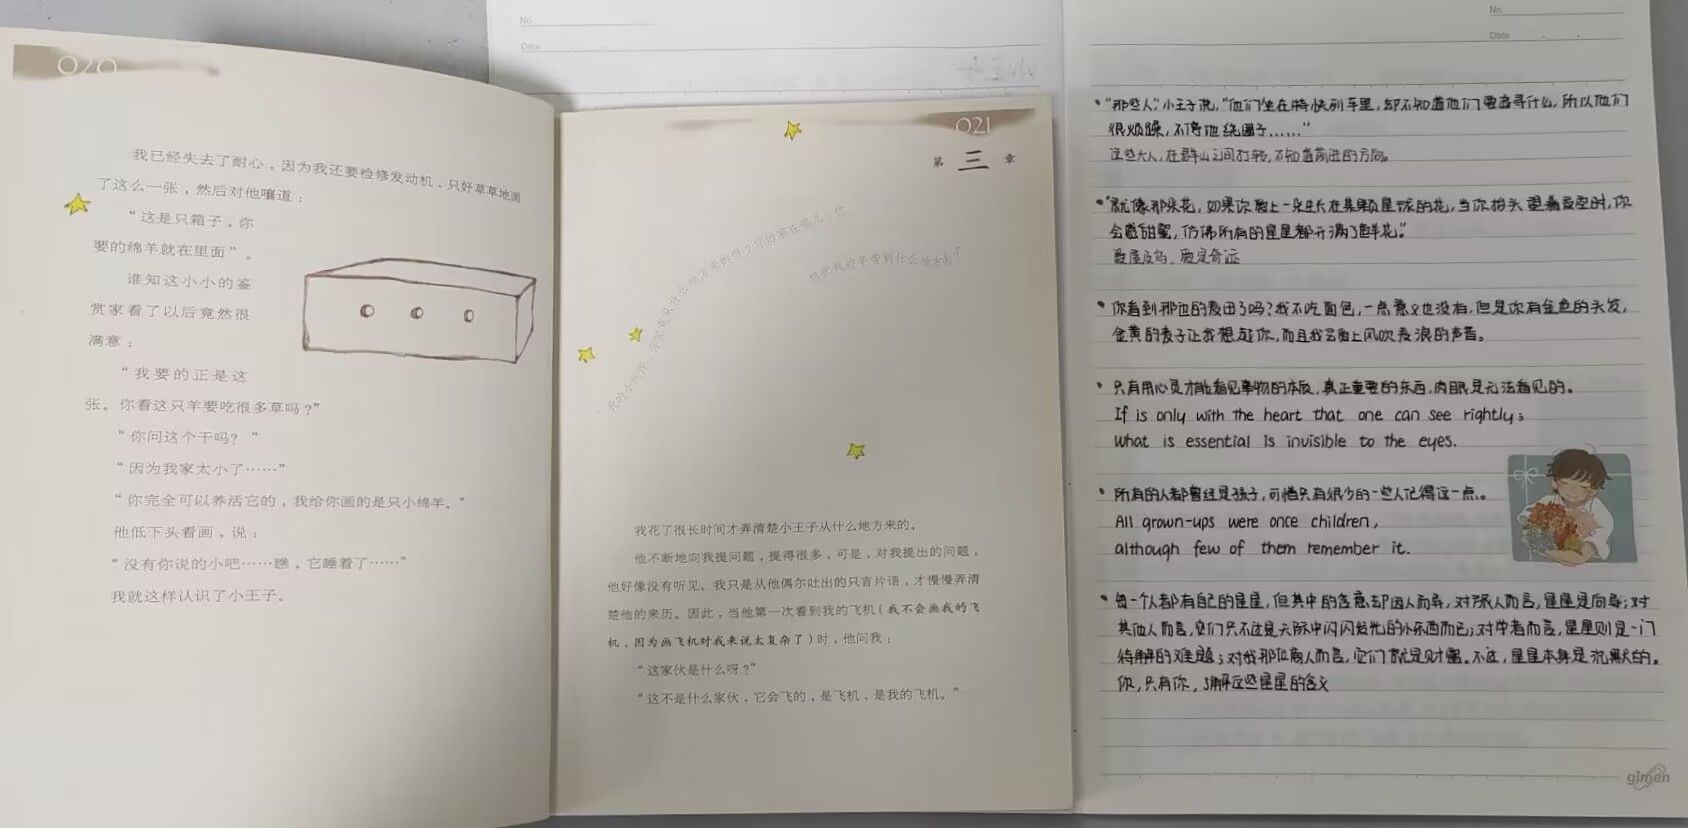 020
我已经失去了耐心，因为我还要检修发动机，只好草草地画
了这么一张，然后对他嚷道：
“这是只箱子，你
要的绵羊就在里面”。
谁知这小小的鉴
赏家看了以后竟然很
满意：
“我要的正是这
张。你看这只羊要吃很多草吗？”
“你问这个干吗？ ”
“因为我家太小了……”
“你完全可以养活它的，我给你画的是只小绵羊。”
他低下头看画，说：
“没有你说的小吧……瞧，它睡着了……”
我就这样认识了小王子。
No.
Date
021
第 三 章
我的小家伙，你究竟从什么地方来的呀？你的家在哪儿，你
想把我的羊带到什么地方去？
我花了很长时间才弄清楚小王子从什么地方来的。
他不断地向我提问题，提得很多，可是，对我提出的问题，
他好像没有听见。我只是从他偶尔吐出的只言片语，才慢慢弄清
楚他的来历。因此，当他第一次看到我的飞机（我不会画我的飞
机，因为画飞机对我来说太复杂了）时，他问我：
“这家伙是什么呀？”
“这不是什么家伙，它会飞的，是飞机，是我的飞机。”
No.
Date
• “那些人”，小王子说，“他们坐在特快列车里，却不知道他们要寻什么，所以他们
很烦躁，不停地绕圈子……”
这些大人，在群山之间打转，不知道前进的方向。
• “就像那朵花，如果你爱上一朵生长在某颗星球的花，当你抬头望着夜空时，你
会感甜蜜，仿佛所有的星星都开满了鲜花。”
爱屋及乌，爱是奇迹
• 你看到那边的麦田了吗？我不吃面包，一点意义也没有，但是你有金色的头发，
金黄的麦子让我想起你，而且我会爱上风吹麦浪的声音。
• 只有用心灵才能看见事物的本质，真正重要的东西，肉眼是无法看见的。
If is only with the heart that one can see rightly;
What is essential is invisible to the eyes.
• 所有的人都曾经是孩子，可惜只有很少的一些人记得这一点。
All grown-ups were once children,
although few of them remember it.
• 每一个人都有自己的星星，但其中的含意却因人而异，对旅人而言，星星是向导；对
其他人而言，它们只不过是天际中闪闪发光的小东西而已；对学者而言，星星则是一门
待解的难题；对我那位商人而言，它们就是财富。不过，星星本身是沉默的。
你，只有你，了解这些星星的含义
gimen